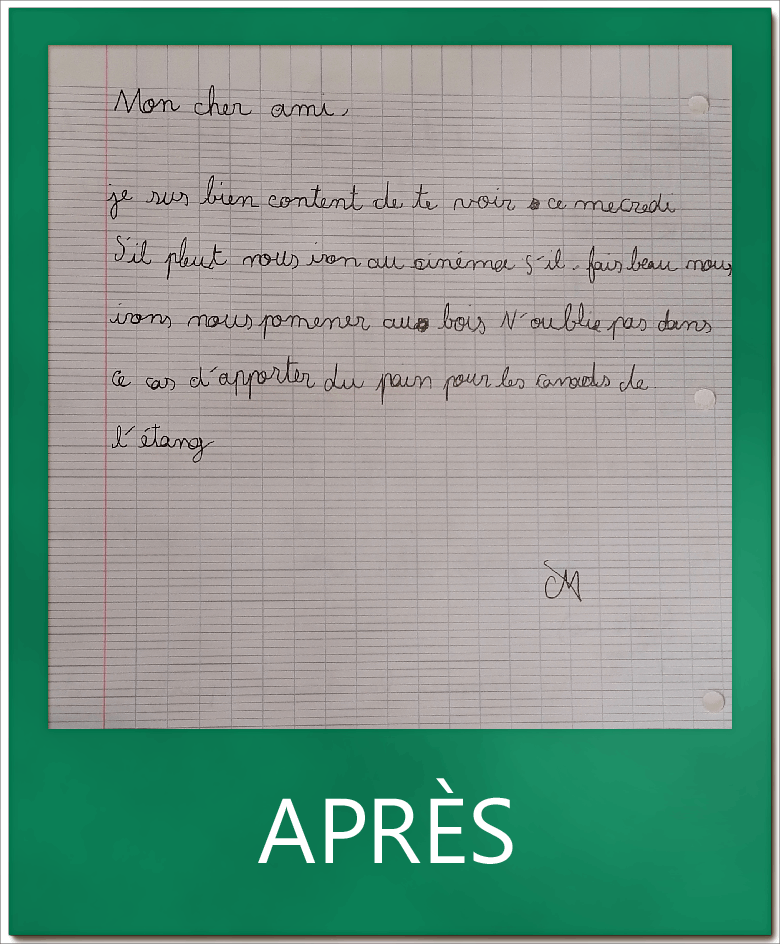 Mon cher ami,
je sus bien content de te voir ce mecredi
S'il pleut nous iron au cinéma s'il fais beau nous
irons nous pomener au bois N'oublie pas dans
ce cas d'apporter du pain pour les canards de
l'étang
M
APRÈS